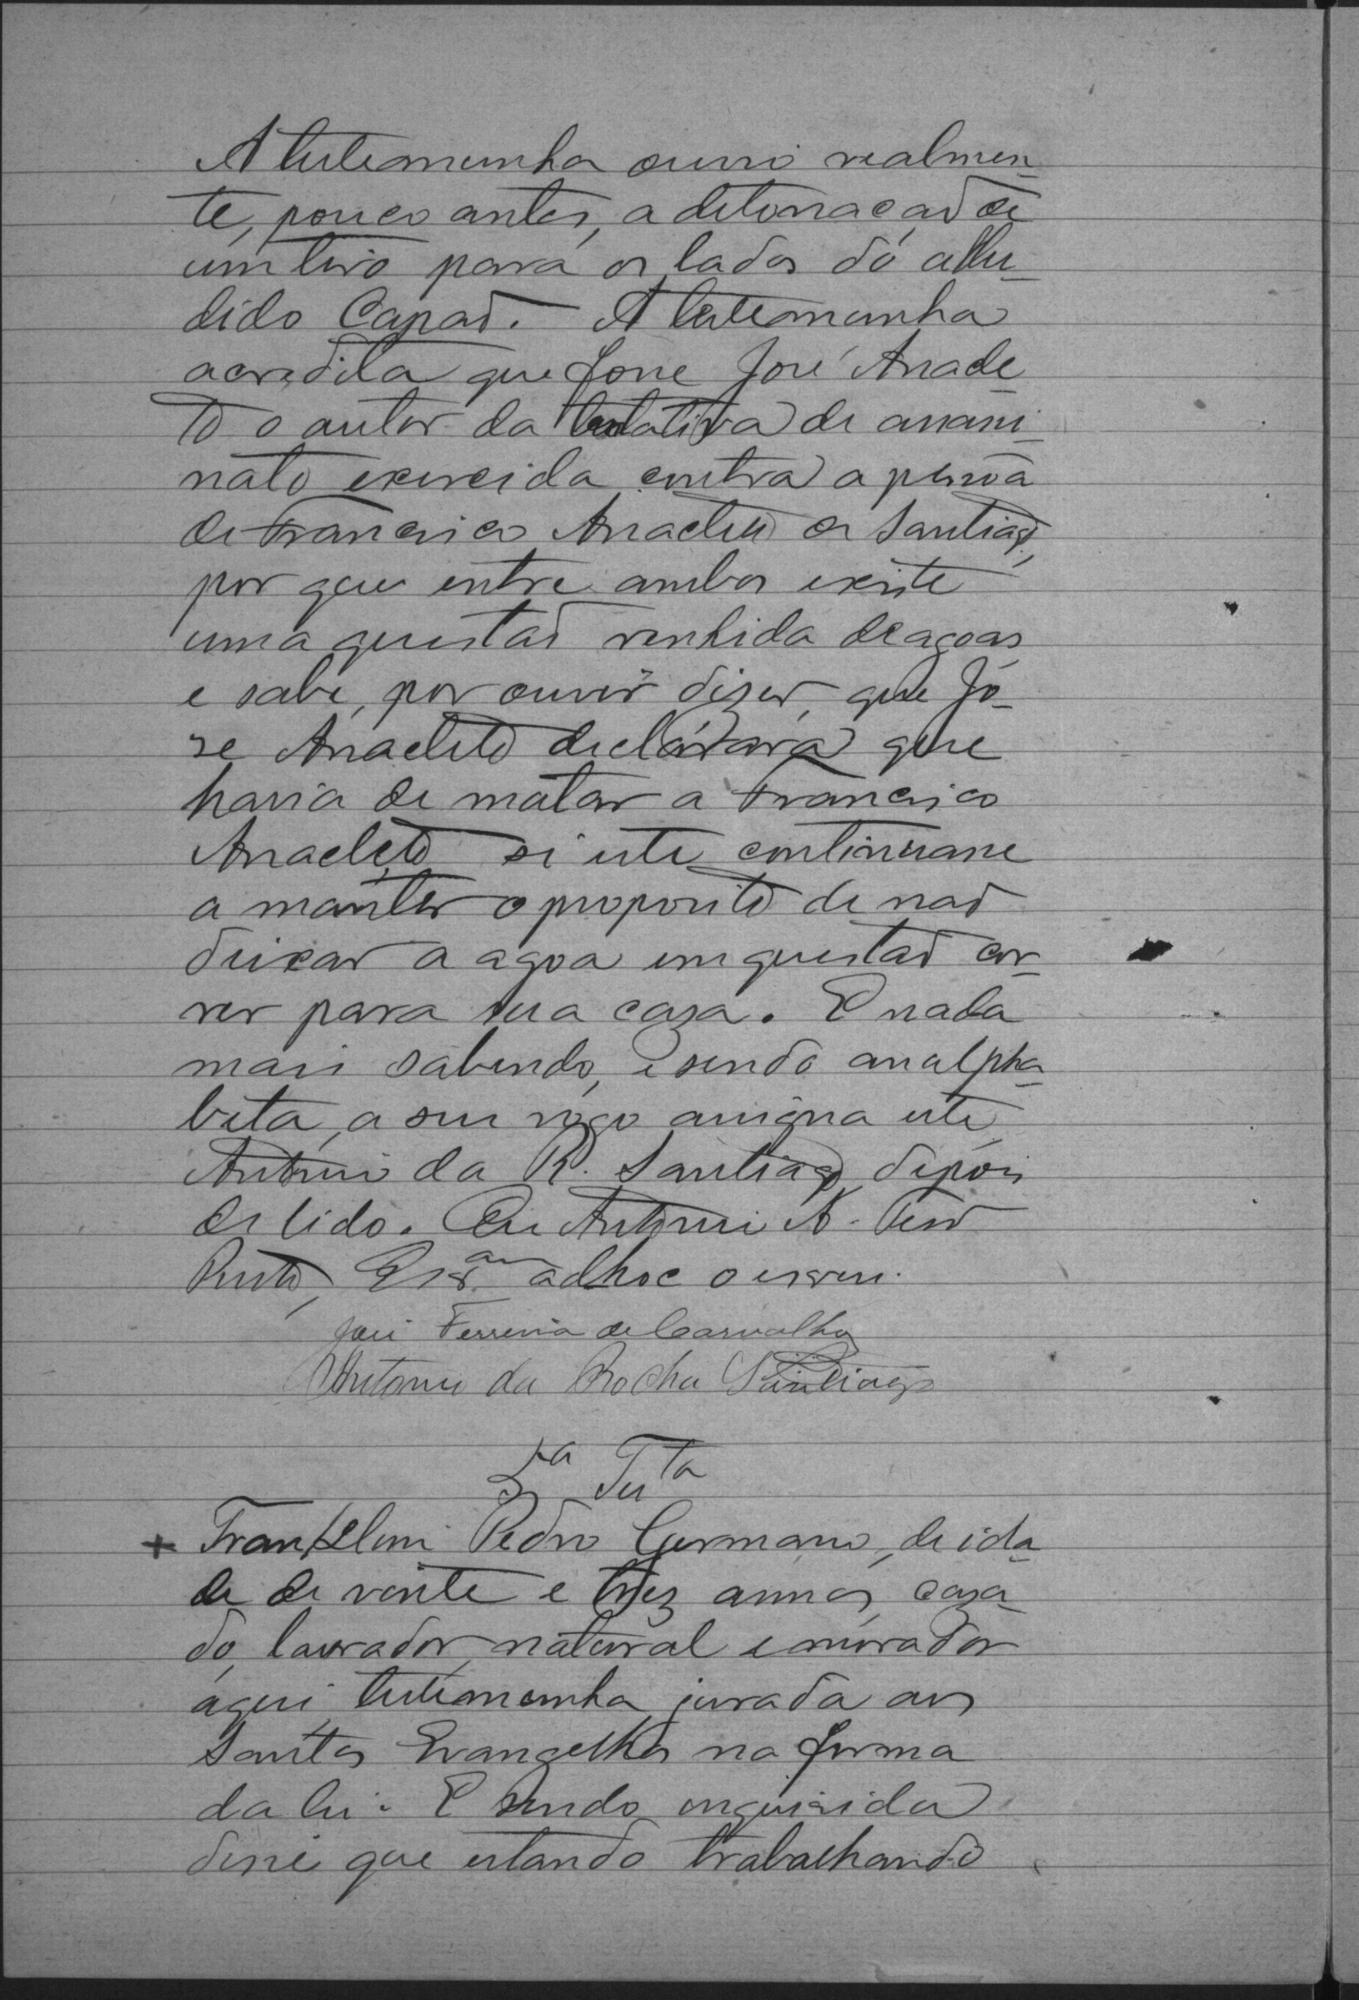 A testemunha ouvio realmen-
te, pouco antes, a detonação de
um tiro para os lados do allu-
dido Capão. A testemunha
acredita que fosse José Anacle-
to o autor da tentativa de assasi-
nato exercida contra a pessoa
de Francisco Anacleto de Santiago,
por que entre ambos existe
uma questão renhida de agoas
e sabe, por ouvir dizer, que Jo-
se Anacleto declarara que
havia de matar a Francisco
Anacleto si este continuasse
a manter o proposito de não
deixar a agoa em questão cor-
rer para sua casa. E nada
mais sabendo, e sendo analpha-
beta, a seu rogo assigna este
Antonio da R. Santiago, depois
de lido. Eu Antonio A.
Pinto, Escr.am adhoc o escrevi.
José Ferreira de Carvalho
Antonio da Rocha Santiago
5a Testa
+ Franklim Pedro Germano, de ida-
de de vinte e trez annos, casa-
do, lavrador, natural e morador
aqui, testemunha jurada aos
Santos Evangelhos na forma
da lei. E sendo inquirida
disse que estando trabalhando